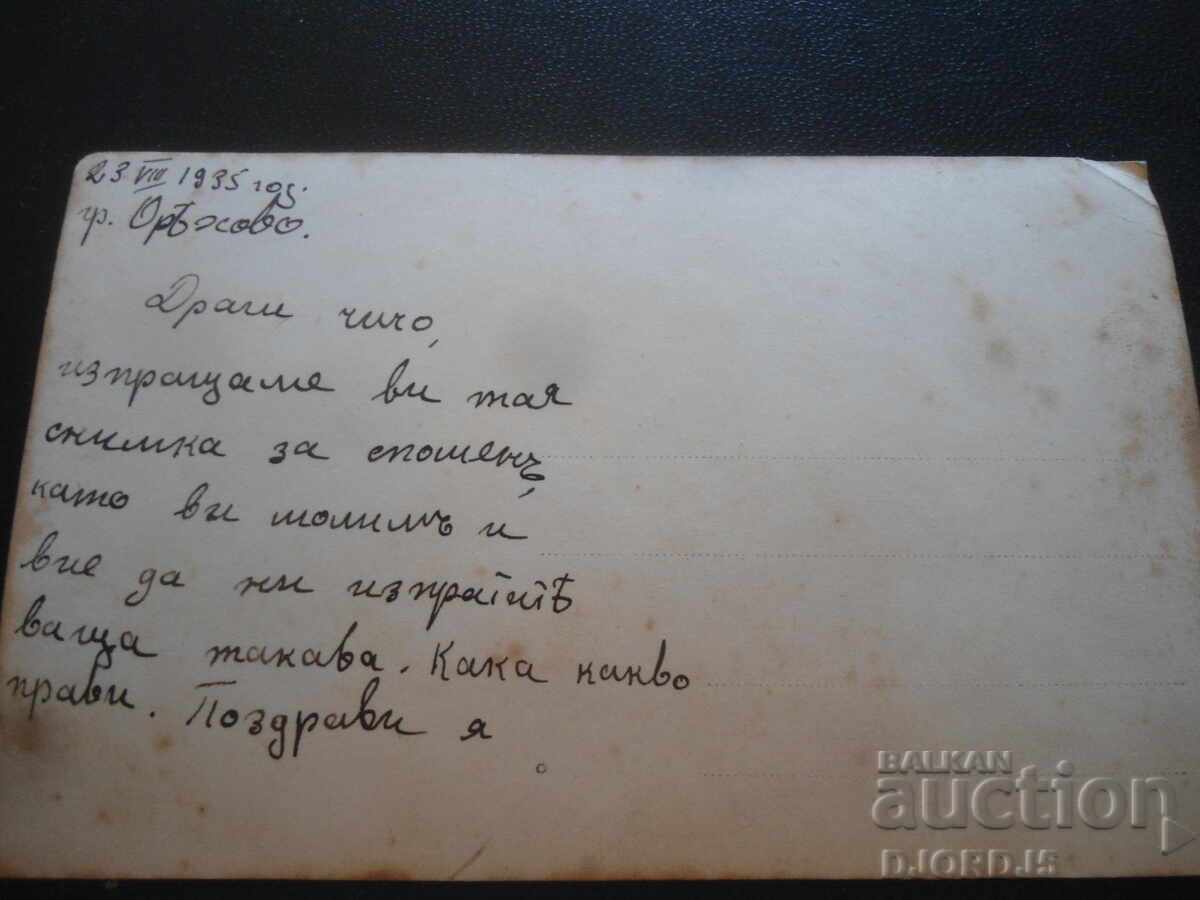 23 VIII 1935 год.
гр. Орѣхово.
Драги чичо,
изпращаме ви тая
снимка за споменъ,
като ви молимъ и
вие да ни изпратитѣ
ваща такава. Кака какво
прави. Поздрави я
BALKAN
auction
DJORDJ5